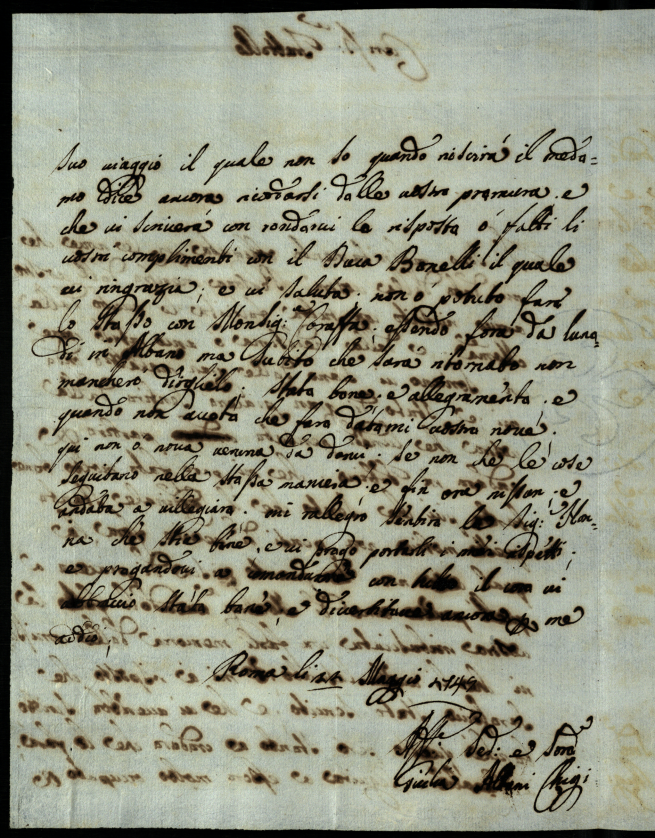 suo viaggio il quale non so quando riuscirà il meda=
mo dice ancora ricordarsi delle vostra premura e
che vi scriverà con rendervi la risposta ó fatti li
vostri complimenti con il Duca Bonelli il quale
vi ringrazia; e vi saluta; non ó potuto fare
lo stesso con Monsig: Caraffa; essendo fora da luna=
dì in Albano ma subito che sara ritornato non
mancherò dirglielo; state bene e allegramente e
quando non avete che fare datemi vostre nove;
qui non o nova veruna da darvi. se non che le cose
seguitano nella stessa maniera e fin ora nissun e
andata a villegiare. mi rallegro sentire le Sig:
na che stia bene, e vi prego porterli i miei rispetti;
e pregandovi a comandarmi con tutto il core vi
abbraccio state bene e divertiteve ancora p me
addio;
Roma li Maggio
Aff: e Sore
Giulia Albani Chigi